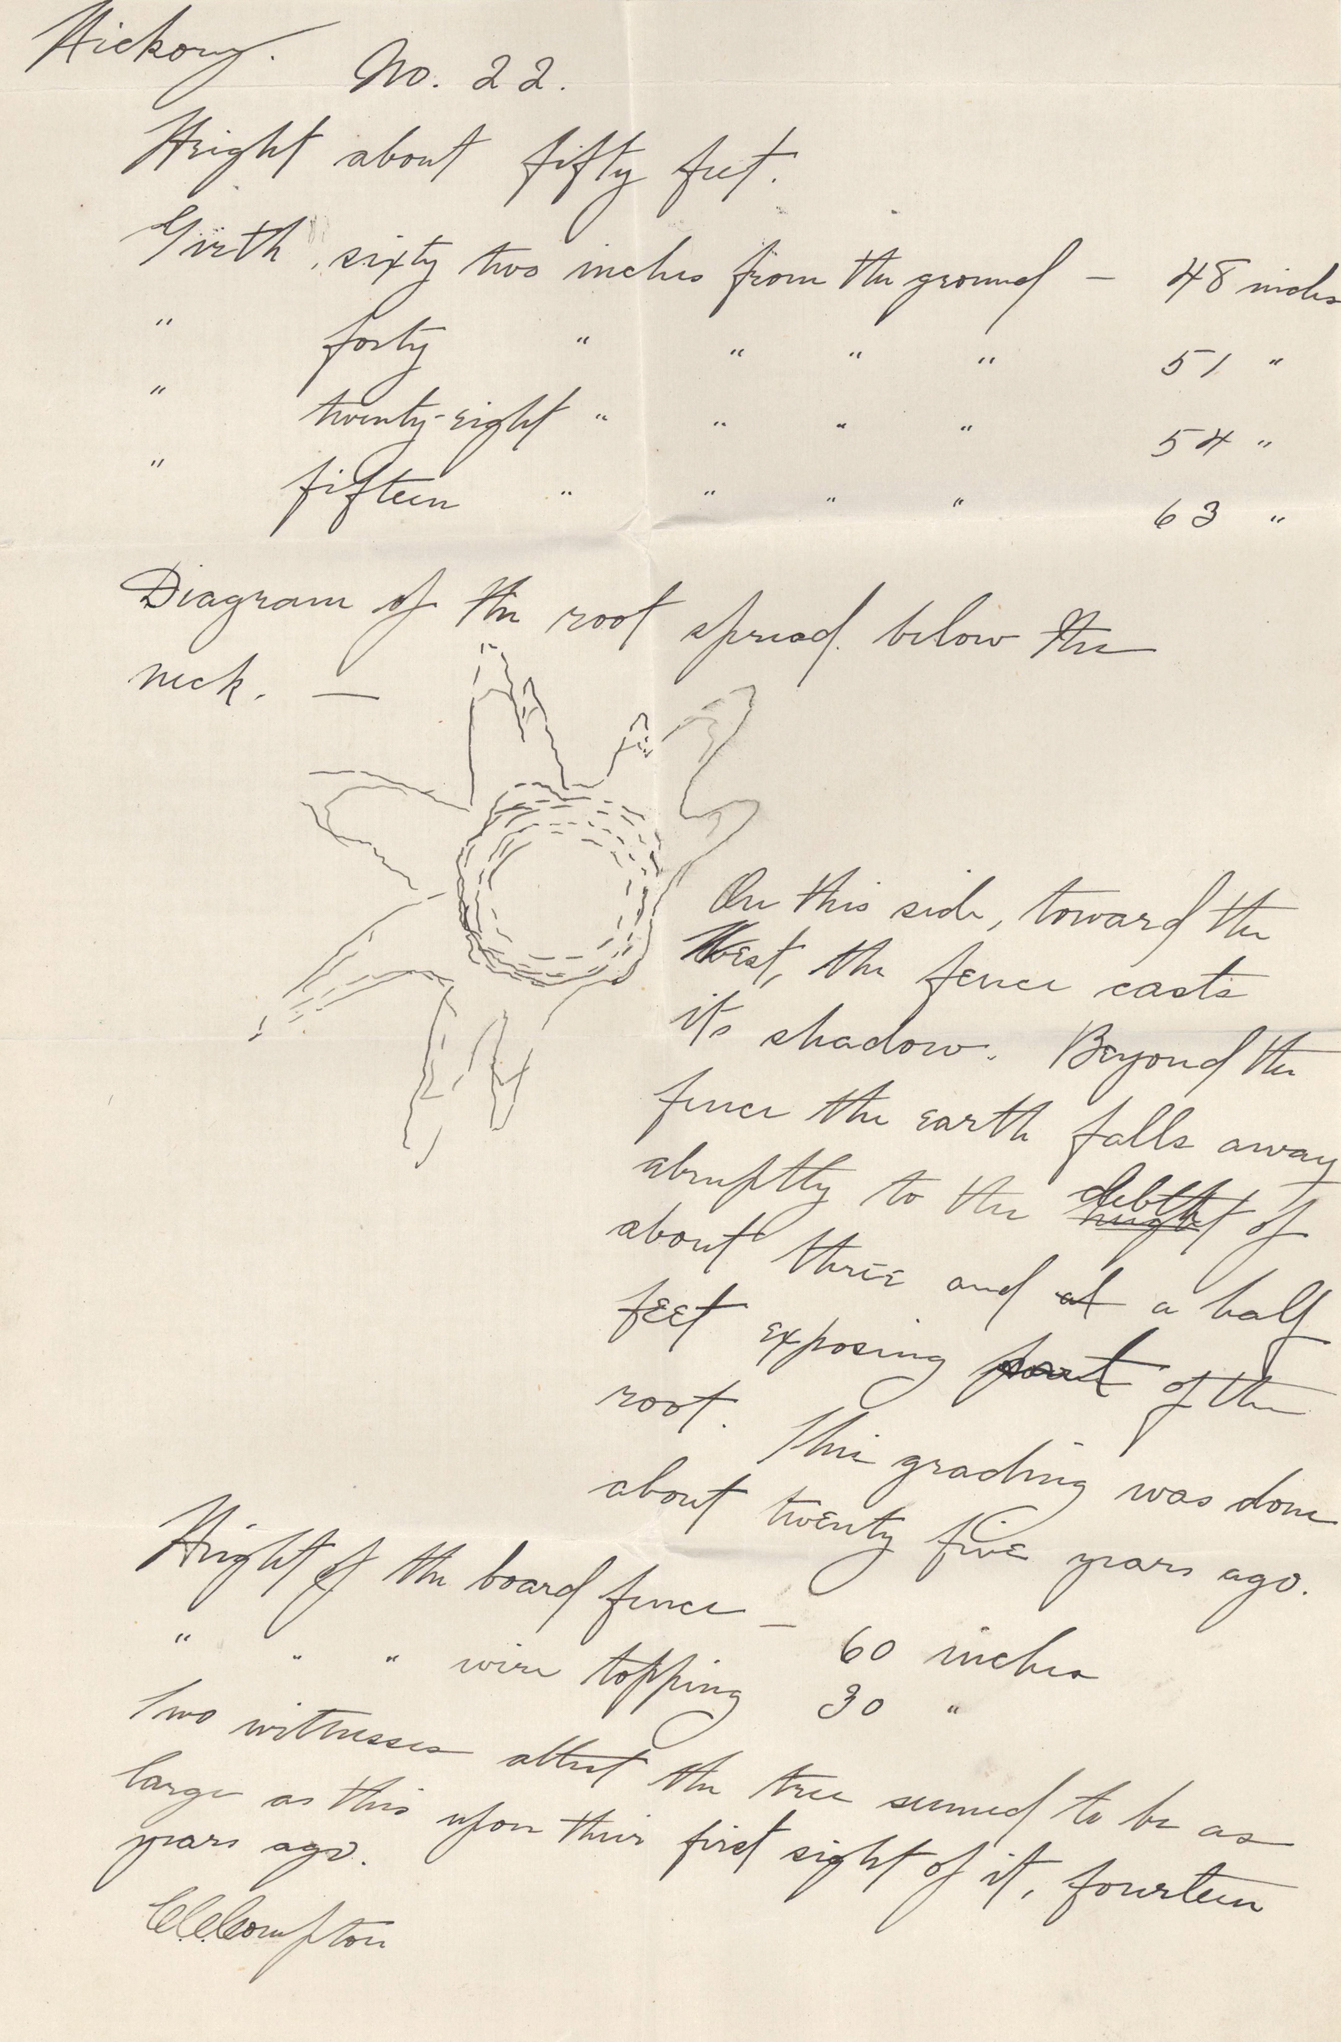 Hickory. No. 22.
Height about fifty feet.
Girth, sixty two inches from the ground — 48 inches
" forty " " " " 51 "
" twenty-eight " " " " 54 "
" fifteen " " " " 63 "
Diagram of the root spread below the
neck. —
On this side, toward the
West, the fence casts
its shadow. Beyond the
fence the earth falls away
abruptly to the debth hught of
about three and at a half
feet exposing part of the
root. This grading was done
about twenty five years ago.
Height of the board fence — 60 inches
" " " wire topping 30 "
Two witnesses attest the tree seemed to be as
large as this upon their first sight of it, fourteen
years ago.
CCCompton